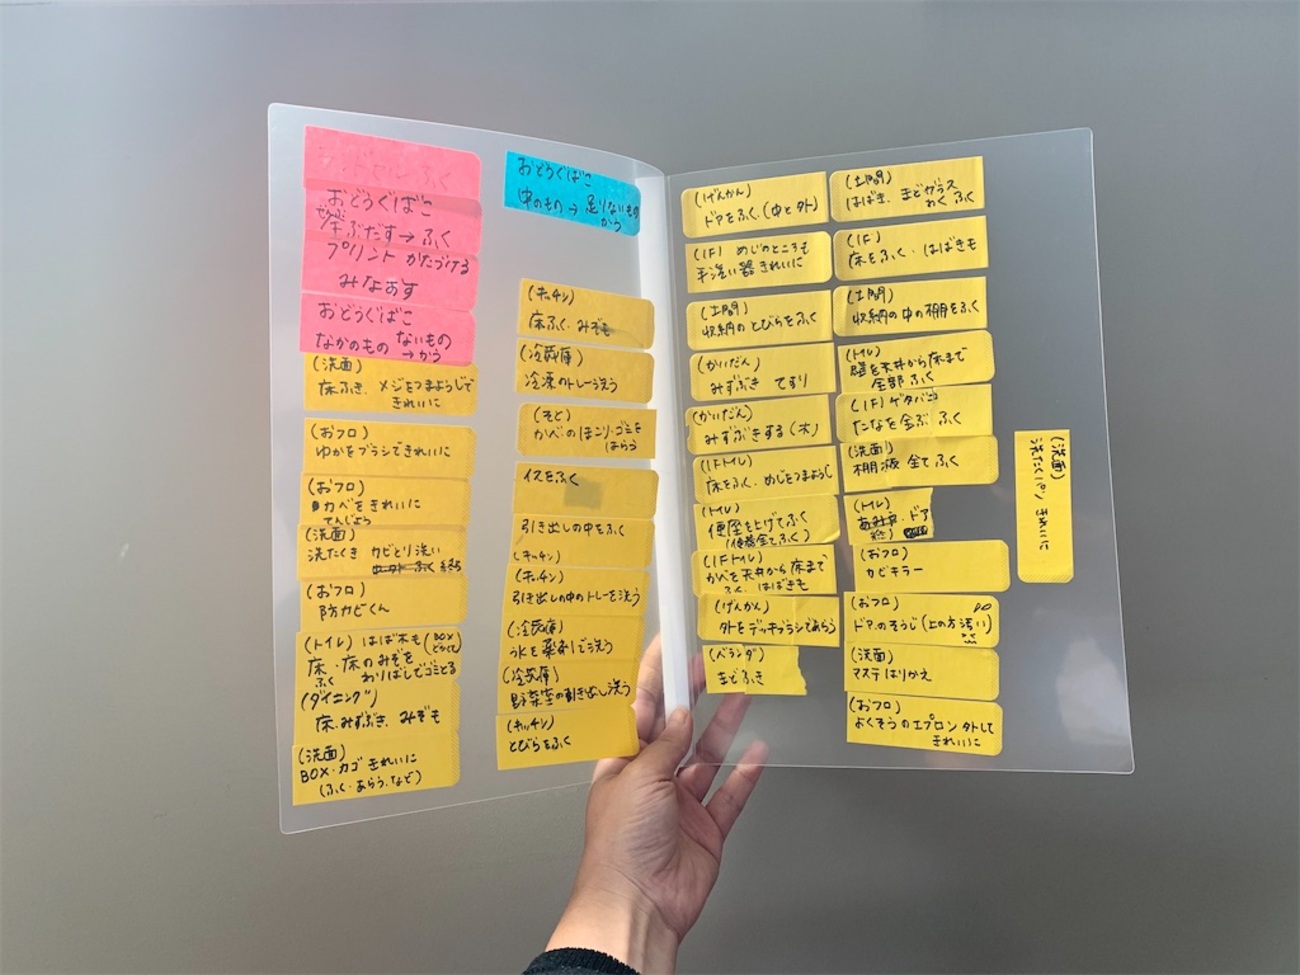 おどうぐばこ
ぜんぶだす→ふく
プリント かたづける
みなおす
おどうぐばこ
なかのもの ないもの
→かう
(洗面)
床ふき、メジをつまようじで
きれいに
(おフロ)
ゆかをブラシできれいに
(おフロ)
カベをきれいに
てんじょう
(洗面)
洗たくき カビとり洗い
(おフロ)
防カビくん
(トイレ) はば木も (BOX どらして)
床・床のみぞを
ふく わりばしでゴミとる
(ダイニング)
床、みずぶき、みぞも
(洗面)
BOX・カゴ きれいに
(ふく・あらう、など)
おどうぐばこ
中のもの→足りないもの
かう
(キッチン)
床ふく・みぞも
(冷蔵庫)
冷凍のトレー洗う
(そと)
かべのほこり・ゴミを
はらう
イスをふく
引き出しの中をふく
(キッチン)
(キッチン)
引き出しの中のトレーを洗う
(冷蔵庫)
氷を薬剤で洗う
(冷蔵庫)
野菜室の引き出し洗う
(キッチン)
とびらをふく
(げんかん)
ドアをふく、(中と外)
(1F) めじのところも
手洗い器きれいに
(土間)
収納のとびらをふく
(かいだん)
みずぶき てすり
(かいだん)
みずぶきする(木)
(1Fトイレ)
床をふく、めじをつまようじ
(トイレ)
便座を上げてふく
(便器全てふく)
(1Fトイレ)
かべを天井から床まで
ふく、はばきも
(げんかん)
外をデッキブラシであらう
(ベランダ)
まどふき
(土間)
はばき、まどガラス
わくふく
(1F)
床をふく・はばきも
(土間)
収納の中の棚をふく
(トイレ)
壁を天井から床まで
全部ふく
(1F) ゲタバコ
たなを全ぶ ふく
(洗面)
棚板 全てふく
(トイレ)
(おフロ)
カビキラー
(おフロ)
ドアのそうじ(上の方汚い)
(洗面)
マステはりかえ
(おフロ)
よくそうのエプロン外して
きれいに
(洗面)
洗たくパン きれいに